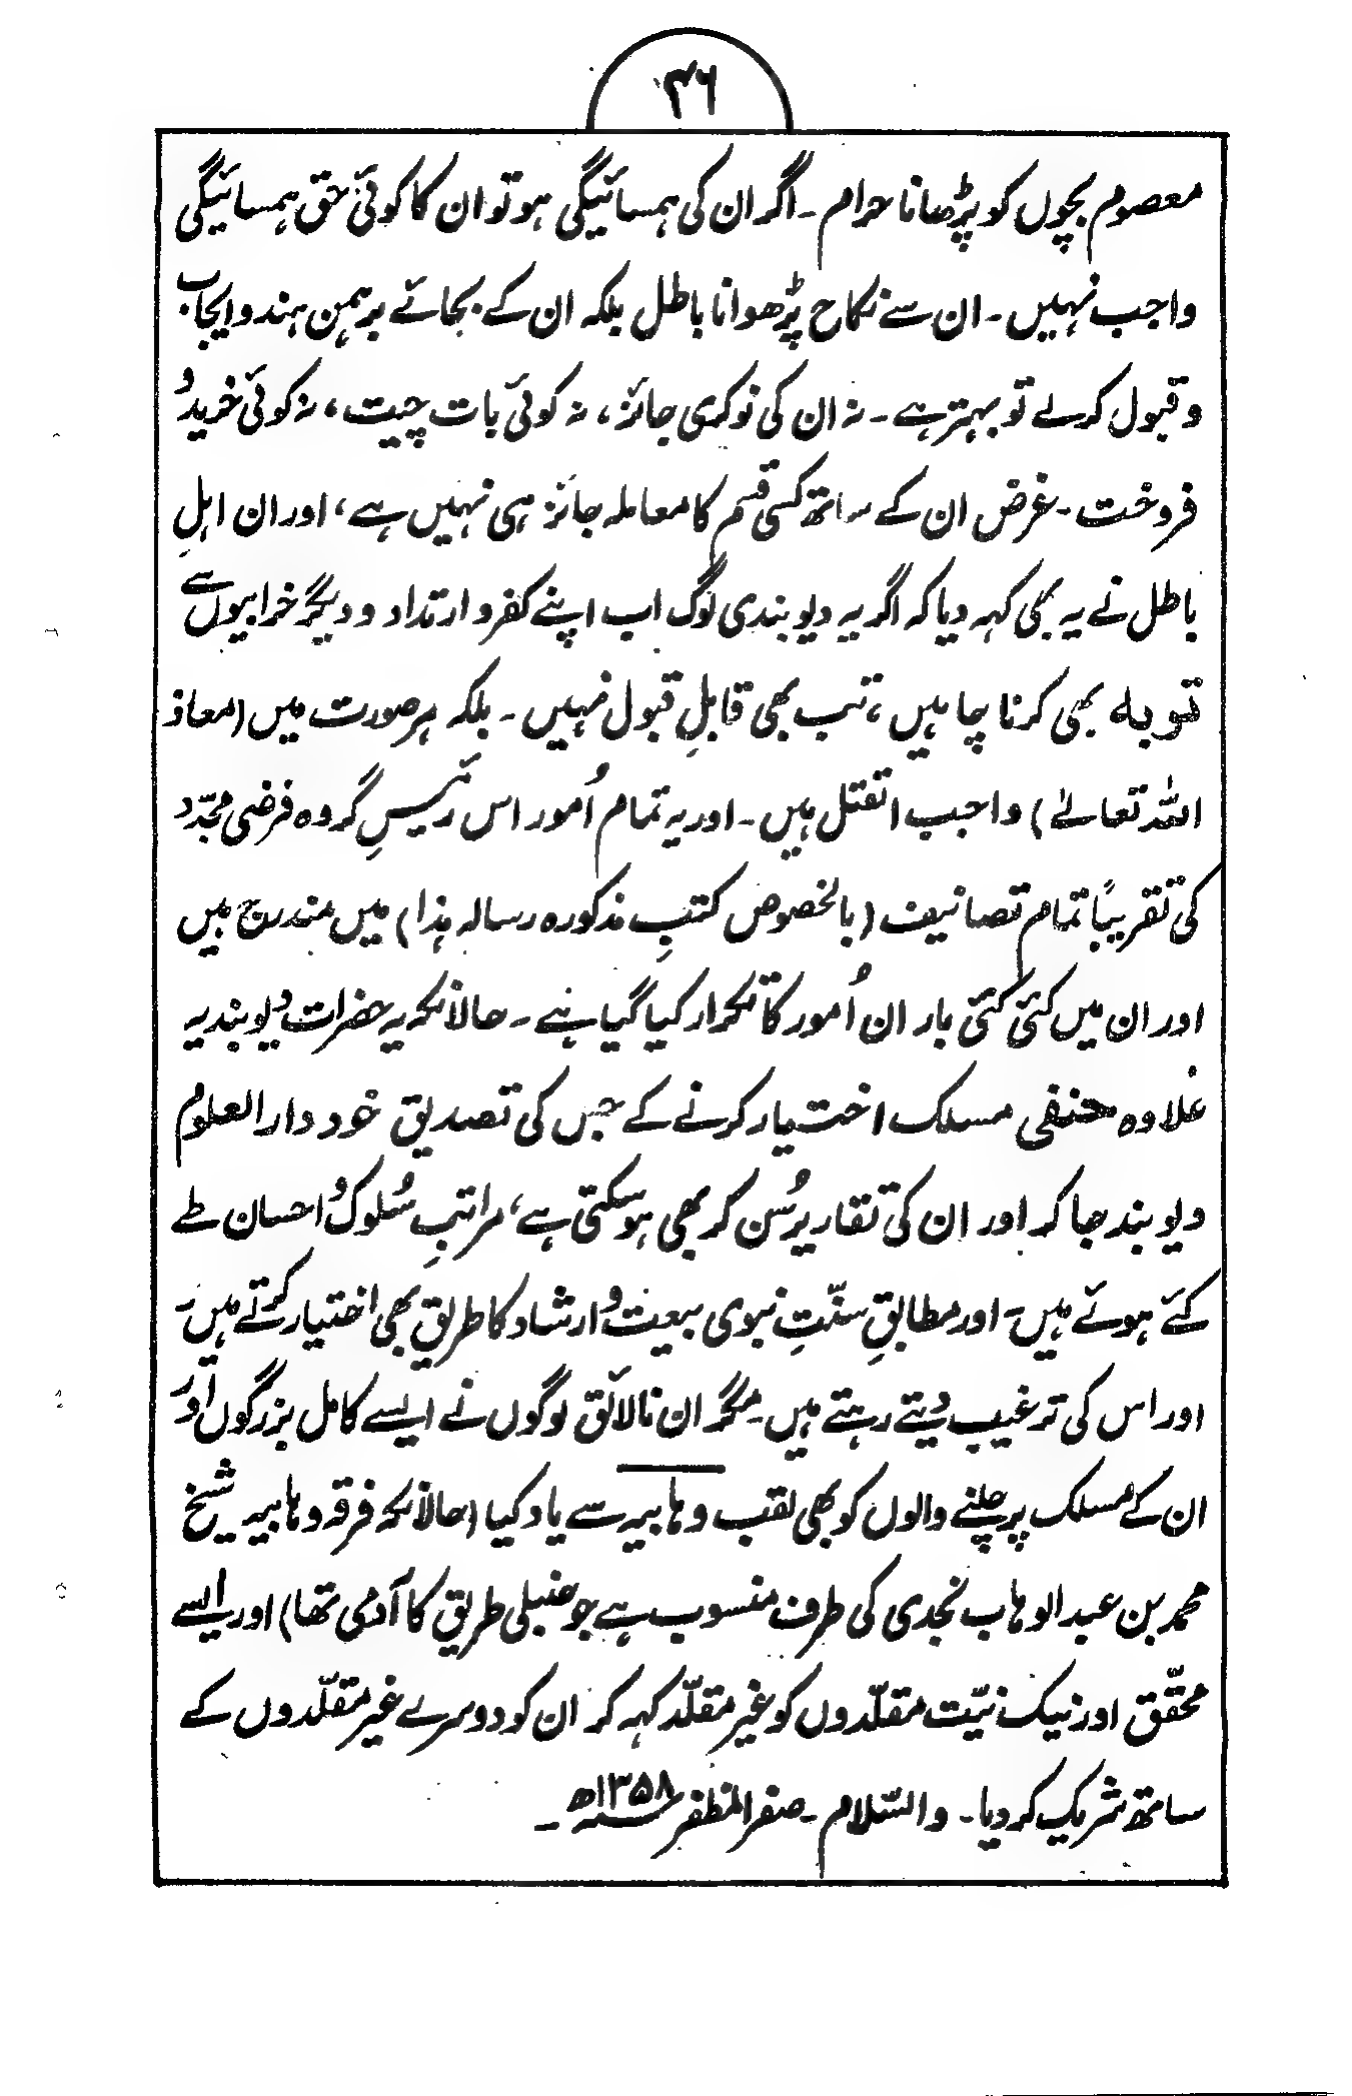 ۳۶
معصوم بچوں کو پڑھانا حرام ۔ اگر ان کی ہمسائیگی ہو تو ان کا کوئی حق ہمسائیگی
واجب نہیں ۔ ان سے نکاح پڑھوانا باطل بلکہ ان کے بجائے برہمن ہندو ایجاب
و قبول کرلے تو بہتر ہے ۔ نہ ان کی نوکری جائز ، نہ کوئی بات چیت ، نہ کوئی خرید و
فروخت ۔ غرض ان کے ساتھ کسی قسم کا معاملہ جائز ہی نہیں ہے ، اور ان اہلِ
باطل نے یہ بھی کہہ دیا کہ اگر یہ دیوبندی لوگ اب اپنے کفر و ارتداد و دیگر خرابیوں سے
توبہ بھی کرنا چاہیں ، تب بھی قابلِ قبول نہیں ۔ بلکہ ہر صورت میں (معاذ
اللہ تعالےٰ) واجب القتل ہیں ۔ اور یہ تمام اُمور اس رئیسِ گروہ فرضی مجدّد
کی تقریباً تمام تصانیف (بالخصوص کتبِ مذکورہ رسالہ ہذا) میں مندرج ہیں
اور ان میں کئی کئی بار ان اُمور کا تکرار کیا گیا ہے ۔ حالانکہ یہ حضرات دیوبندیہ
علاوہ حنفی مسلک اختیار کرنے کے جس کی تصدیق خود دارالعلوم
دیوبند جا کر اور ان کی تقاریر سُن کر بھی ہوسکتی ہے ، مراتبِ سُلوک و احسان طے
کئے ہوئے ہیں ۔ اور مطابقِ سنّتِ نبوی بیعت و ارشاد کا طریق بھی اختیار کرتے ہیں ۔
اور اس کی ترغیب دیتے رہتے ہیں ۔ مگر ان نالائق لوگوں نے ایسے کامل بزرگوں اور
ان کے مسلک پر چلنے والوں کو بھی لقب وہابیہ سے یاد کیا (حالانکہ فرقہ وہابیہ شیخ
محمد بن عبدالوہاب نجدی کی طرف منسوب ہے جو حنبلی طریق کا آدمی تھا) اور ایسے
محقّق اور نیک نیّت مقلّدوں کو غیر مقلّد کہہ کر ان کو دوسرے غیر مقلّدوں کے
ساتھ شریک کردیا ۔ والسّلام ۔ صفر المظفر ۱۳۵۸ھ ۔